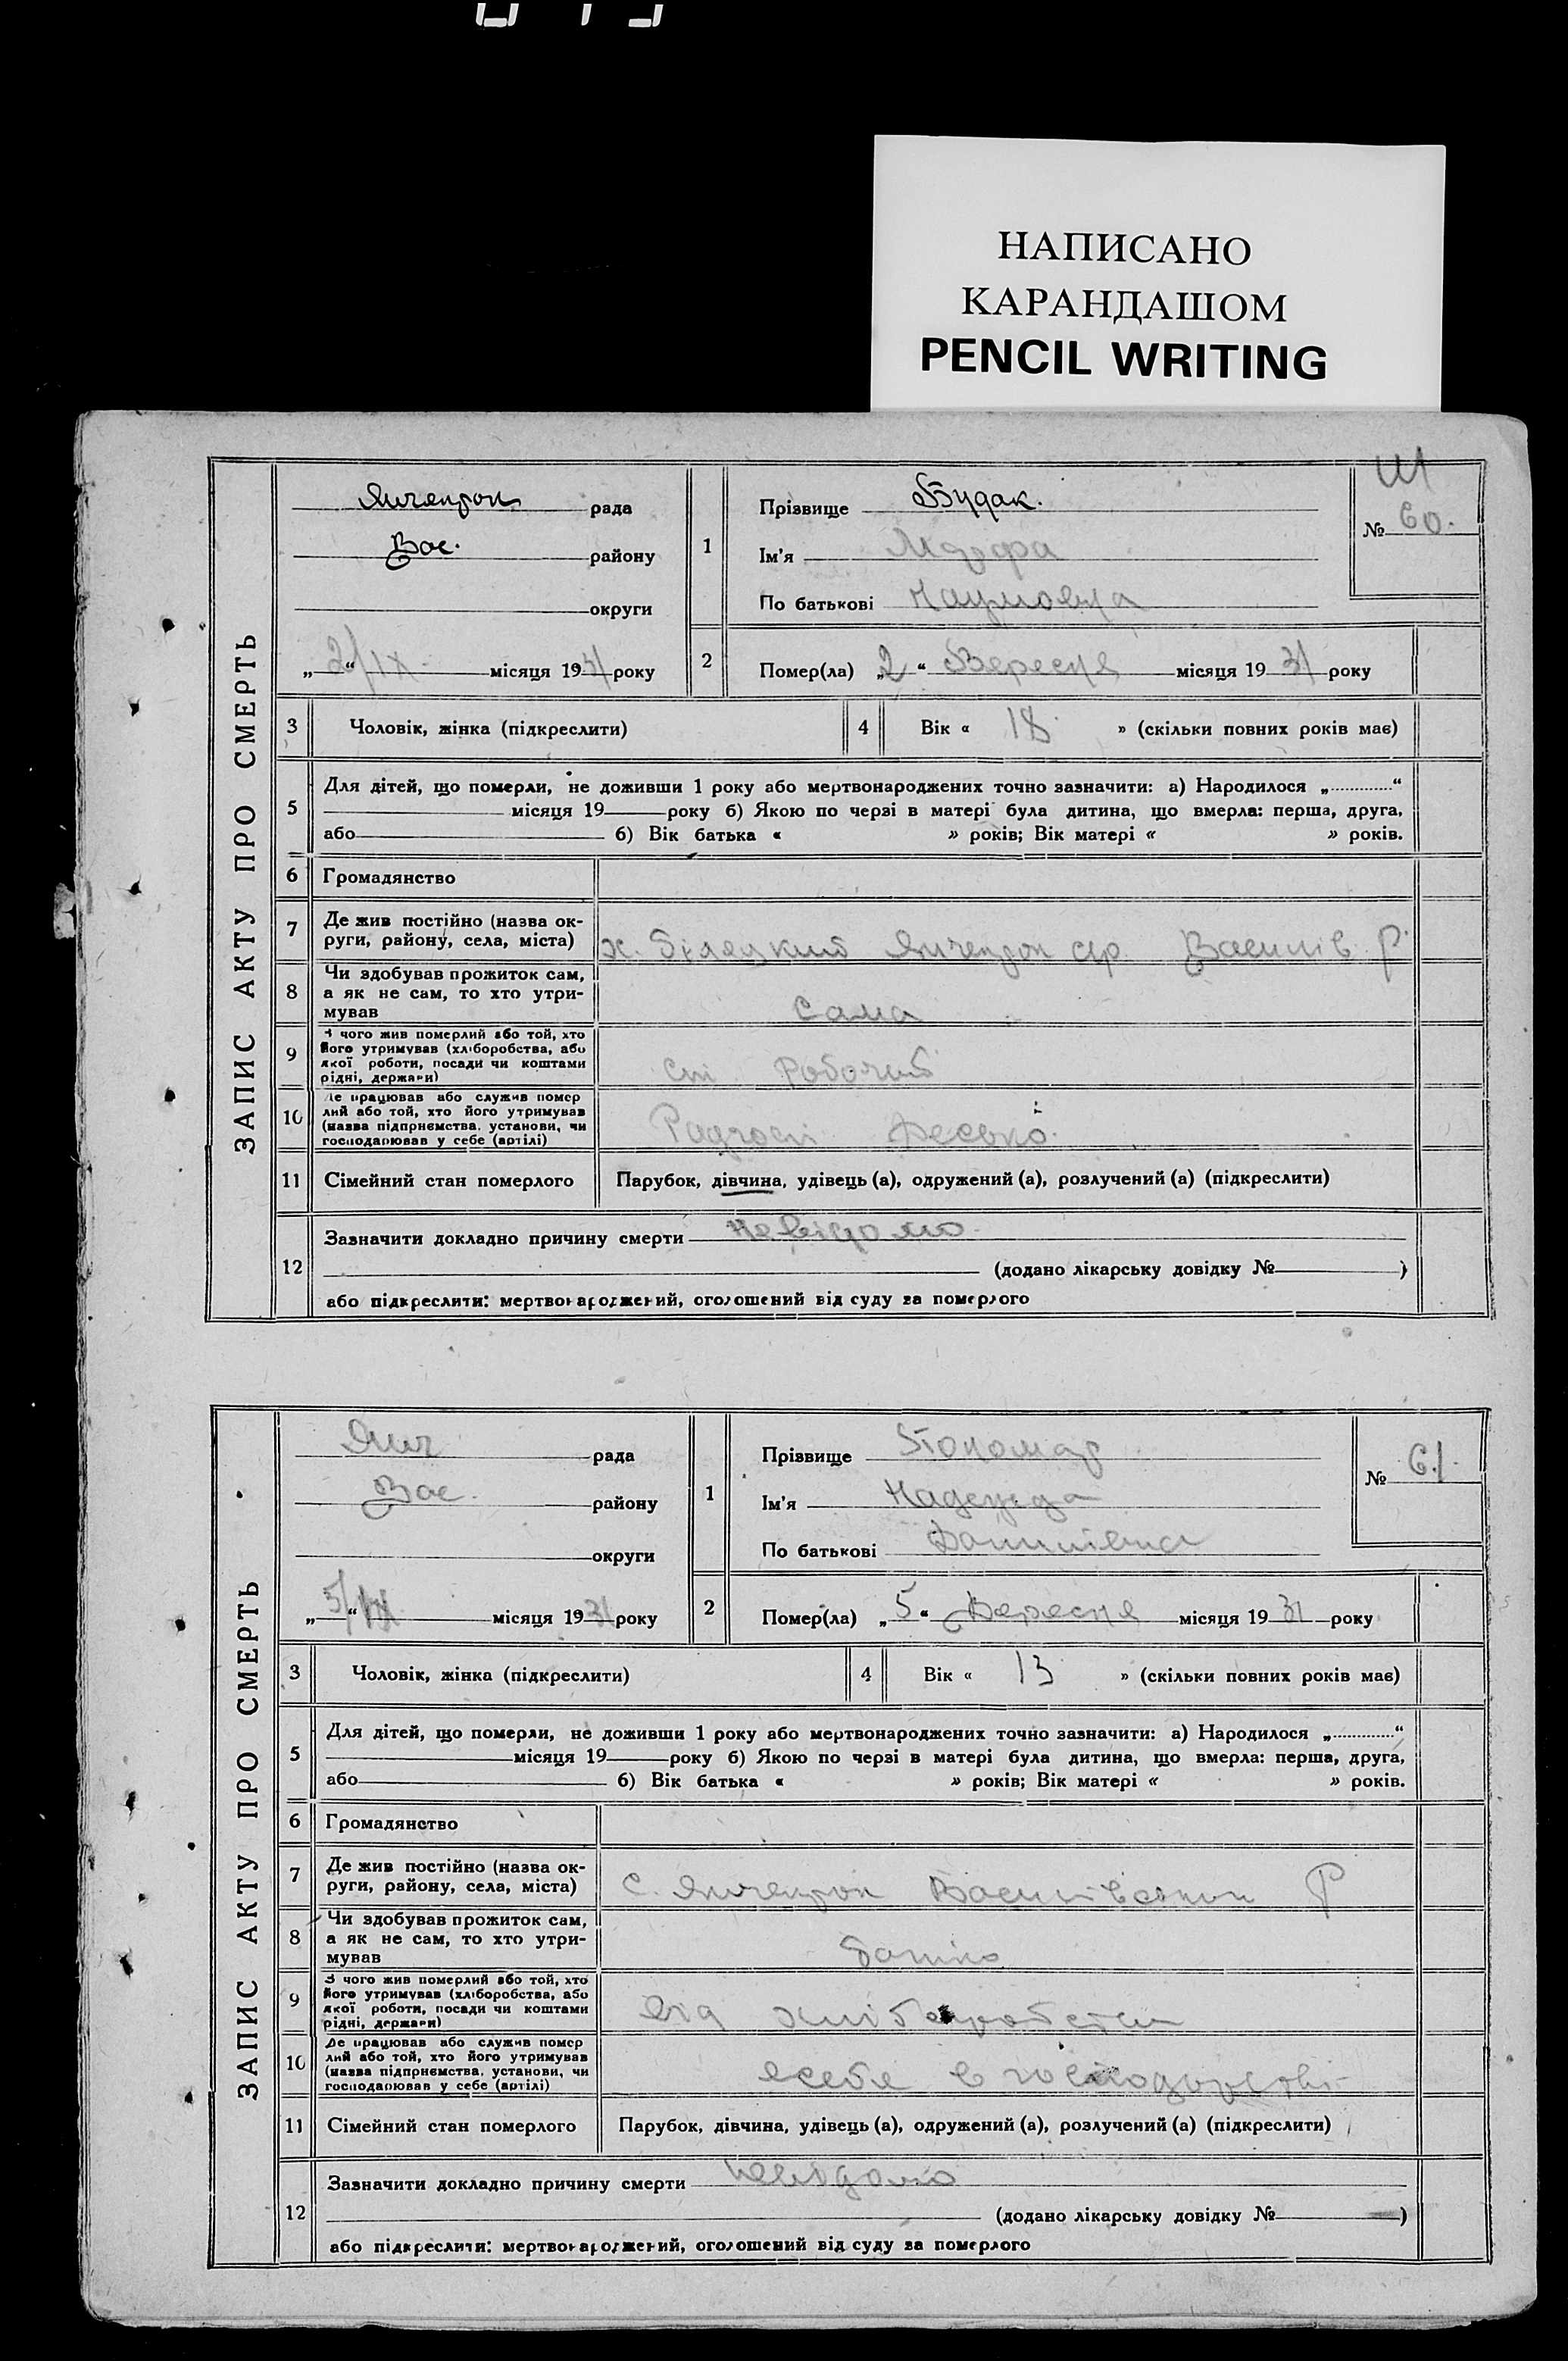 НАПИСАНО
КАРАНДАШОМ
PENCIL WRITING
ЗАПИС АКТУ ПРО СМЕРТЬ
Янчекрак рада
Вас. району
округи
„2/“ IX місяця 1931 року
1
Прізвище Будак.
Ім'я
По батькові Наумовна
№ 60.
2
Помер(ла) „2“ Вересня місяця 19 31 року
3 Чоловік, жінка (підкреслити)
4 Вік « 18 » (скільки повних років має)
5
Для дітей, що померли, не доживши 1 року або мертвонароджених точно зазначити: а) Народилося „.............“
місяця 19 року б) Якою по черзі в матері була дитина, що вмерла: перша, друга,
або б) Вік батька « » років; Вік матері « » років.
6 Громадянство
7
Де жив постійно (назва ок-
руги, району, села, міста)
х. Янчекрак с/р. Василів Р.
8
Чи здобував прожиток сам,
а як не сам, то хто утри-
мував
Сама
9
З чого жив померлий або той, хто
його утримував (хліборобства, або
якої роботи, посади чи коштами
рідні, держави)
Робочий
10
Де працював або служив помер
лий або той, хто його утримував
(назва підприємства, установи, чи
господарював у себе (артілі)
Радгосп
11 Сімейний стан померлого
Парубок, дівчина, удівець (а), одружений (а), розлучений (а) (підкреслити)
12
Зазначити докладно причину смерти невідомо.
(додано лікарську довідку № )
або підкреслити: мертвонароджений, оголошений від суду за померлого
ЗАПИС АКТУ ПРО СМЕРТЬ
Янч рада
Вас. району
округи
„5/“ IX місяця 1931 року
1
Прізвище Пономар
Ім'я Надежда
По батькові Данилівна
№ 61.
2
Помер(ла) „5“ Вересня місяця 19 31 року
3 Чоловік, жінка (підкреслити)
4 Вік « 13 » (скільки повних років має)
5
Для дітей, що померли, не доживши 1 року або мертвонароджених точно зазначити: а) Народилося „.............“
місяця 19 року б) Якою по черзі в матері була дитина, що вмерла: перша, друга,
або б) Вік батька « » років; Вік матері « » років.
6 Громадянство
7
Де жив постійно (назва ок-
руги, району, села, міста)
с. Янчекрак Василівський Р
8
Чи здобував прожиток сам,
а як не сам, то хто утри-
мував
батько
9
З чого жив померлий або той, хто
його утримував (хліборобства, або
якої роботи, посади чи коштами
рідні, держави)
від хліборобства
10
Де працював або служив помер
лий або той, хто його утримував
(назва підприємства, установи, чи
господарював у себе (артілі)
у себе в господарстві
11 Сімейний стан померлого
Парубок, дівчина, удівець (а), одружений (а), розлучений (а) (підкреслити)
12
Зазначити докладно причину смерти невідомо
(додано лікарську довідку № )
або підкреслити: мертвонароджений, оголошений від суду за померлого